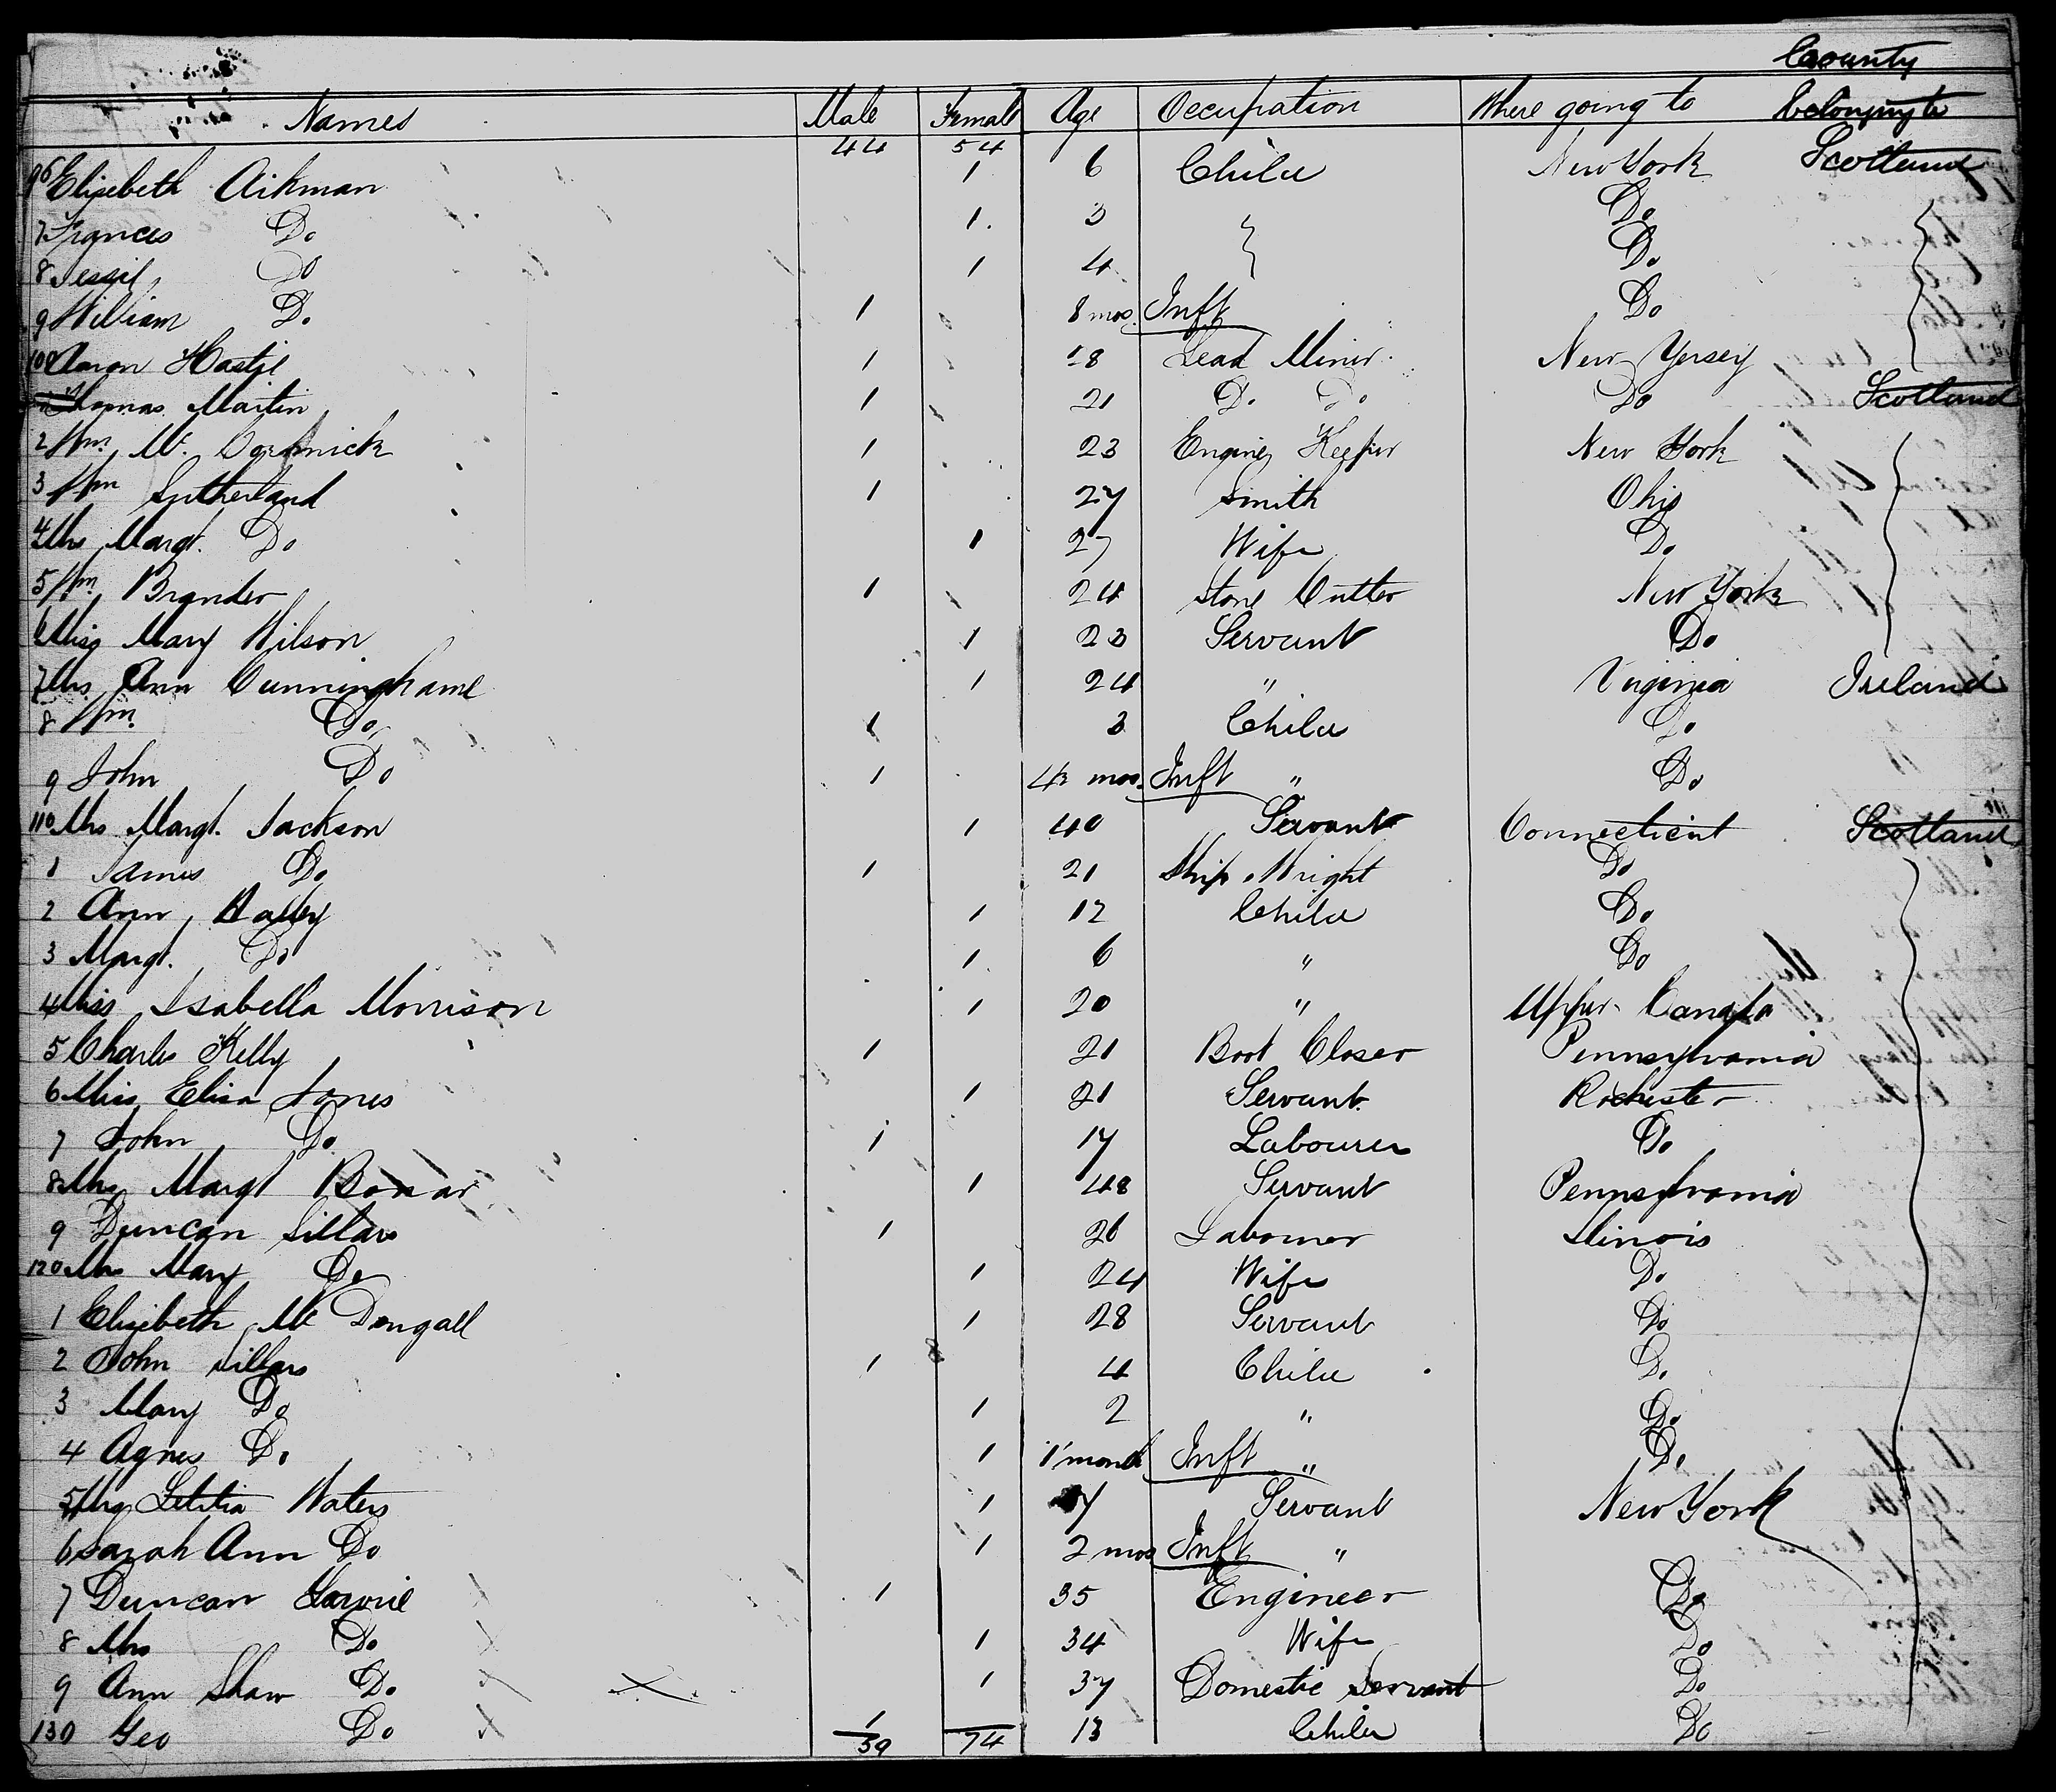 County
Names Male Female Age Occupation Where going to belonging to
44 54
96 Elizebeth Aikman 1 6 Child New York Scotland
7 Frances Do 1 3 " Do
8 Jessie Do 1 4 Do
9 William Do 1 8 mos. Inft Do
100 Aaron Hastie 1 18 Lead Miner New Yersey
Thomas Martin 1 21 Do Do Do Scotland
2 Wm Mc Cormick 1 23 Engine Keeper New York
3 Wm Sutherland 1 27 Smith Ohio
4 Mrs Margt. Do 1 27 Wife Do
5 Wm Brander 1 24 Stone Cutter New York
6 Miss Mary Wilson 1 23 Servant Do
7 Mrs Ann Cunninghame 1 24 " Virginia Ireland
8 Wm Do 1 3 Child Do
9 John Do 1 4 mos. Inft " Do
110 Mrs Margt. Jackson 1 40 Servant Connecticut Scotland
1 James Do 1 21 Ship Wright Do
2 Ann 1 12 Child Do
3 Margt. Do 1 6 " Do
4 Miss Isabella Morrison 1 20 " Upper Canada
5 Charles Kelly 1 21 Boot Closer Pennsylvania
6 Miss Eliza Jones 1 21 Servant Rochester
7 John Do 1 17 Labourer Do
8 Mrs Margt Bonar 1 48 Servant Pennsylvania
9 Duncan Sillars 1 26 Labourer Ilinois
120 Mrs Mary Do 1 24 Wife Do
1 Elizebeth Mc Dougall 1 28 Servant Do
2 John Sillars 1 4 Child Do
3 Mary Do 1 2 " Do
4 Agnes Do 1 1 month Inft " Do
5 Mrs Letitia Waters 1 Servant New York
6 Sarah Ann Do 1 2 mos Inft "
7 Duncan Garvie 1 35 Engineer Do
8 Mrs Do 1 34 Wife Do
9 Ann Shaw Do 1 37 Domestic Servant Do
130 Geo Do 1 13 Child Do
59 74